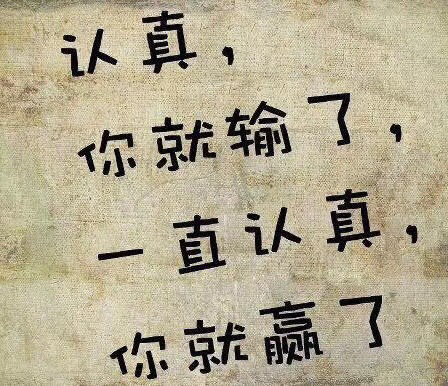 认真，
你就输了，
一直认真，
你就赢了